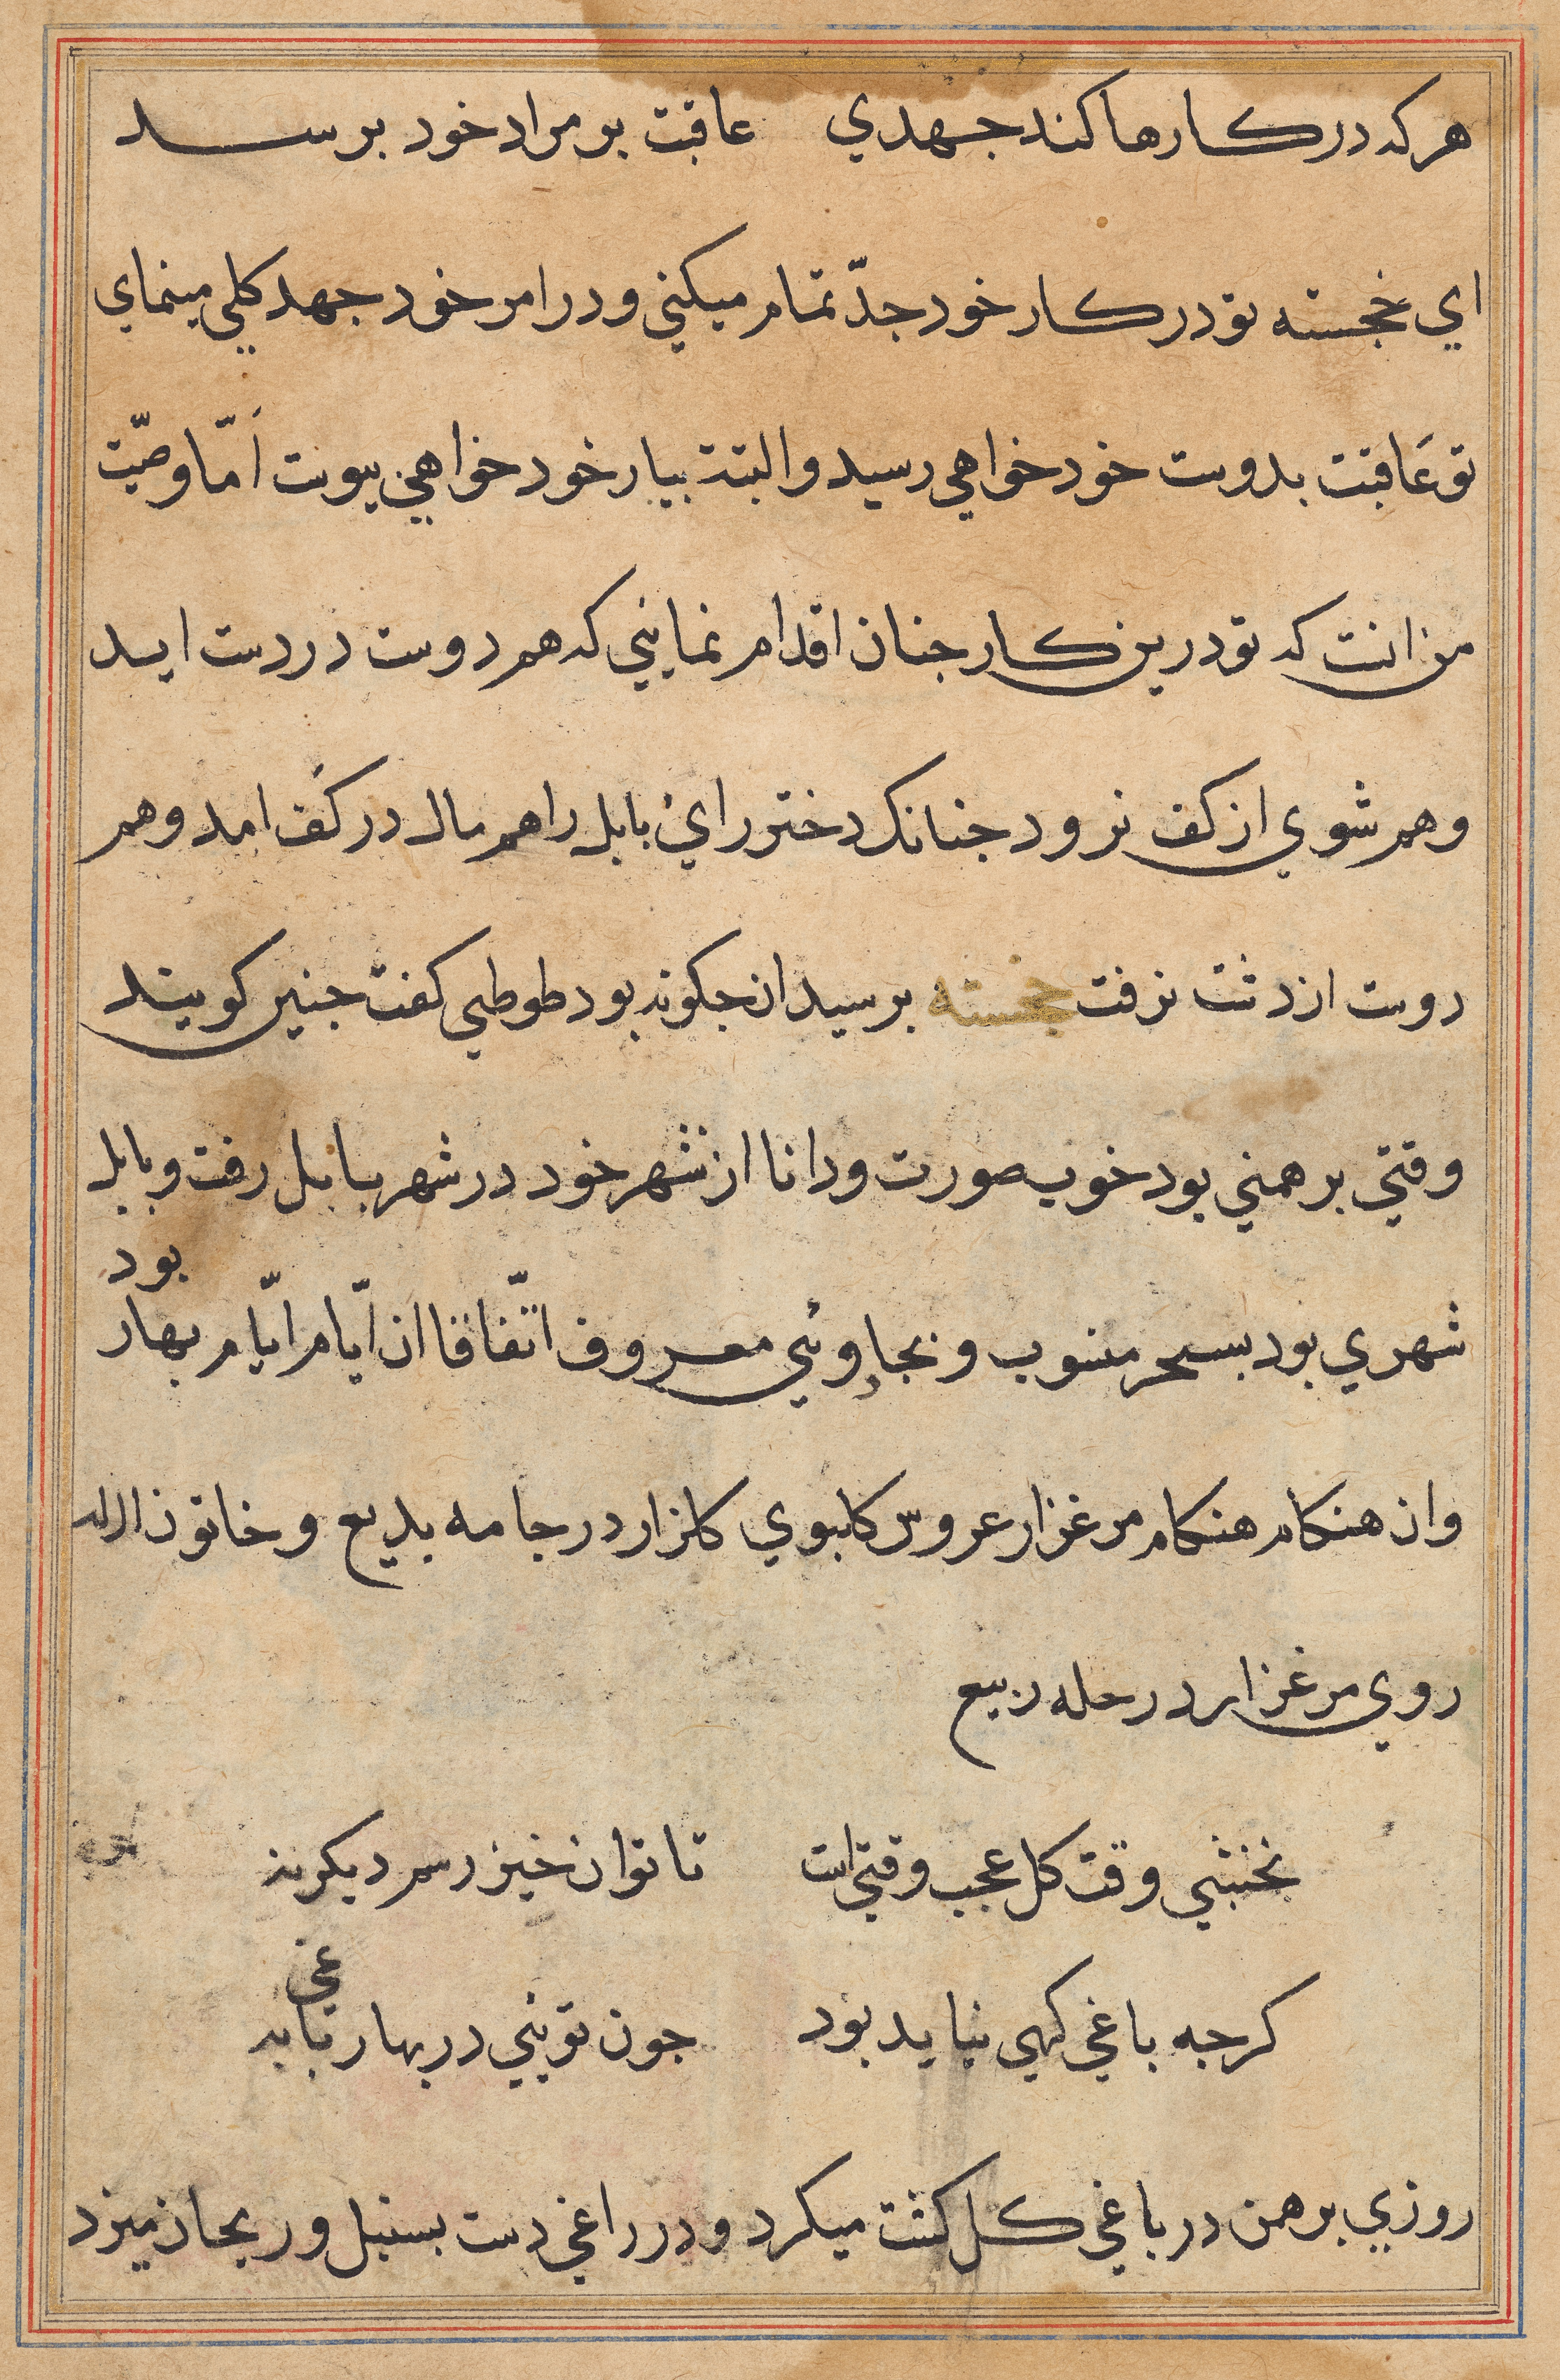 هر که در کارها کند جهدي عاقبت بر مراد خود برسد
اي خجسته تو در کار خود جدّ تمام میکني و در امر خود جهد کلي مینماي
تو عَاقبت بدوست خود خواهي رسید و البته بیار خود خواهي پیوست اَمّا وصیّت
من انست که تو درین کار جنان اقدام نمایني که هم دوست در دست اید
و هم شوي از کف نرود جنانک دختر رائ بابل را هم مال در کَف امد و هم
دوست از دست نرفت خجسته برسید ان جکونه بود طوطي کفت جنین کویند
وقتي برهمني بود خوب صورت و دانا از شهر خود در شهر بابل رفت و بابل
شهري بود بسحر منسوب و بجاوئي معروف اتّفاقا ان ایّام ایّام بهار بود
و ان هنکام هنکام مرغزار عروس کلبوي کلزار در جامه بدیع و خاتون لاله
روي مرغزار در حله ربیع
نخشبي وقت کل عجب وقتي است تا توان خیز رسم دیکر نه
کرجه باغي کهي نباید بود جون توئي در بهار باغي به
روزي برهمن در باغي کل کشت میکرد و در راغي دست بسنبل و ریحان میزد